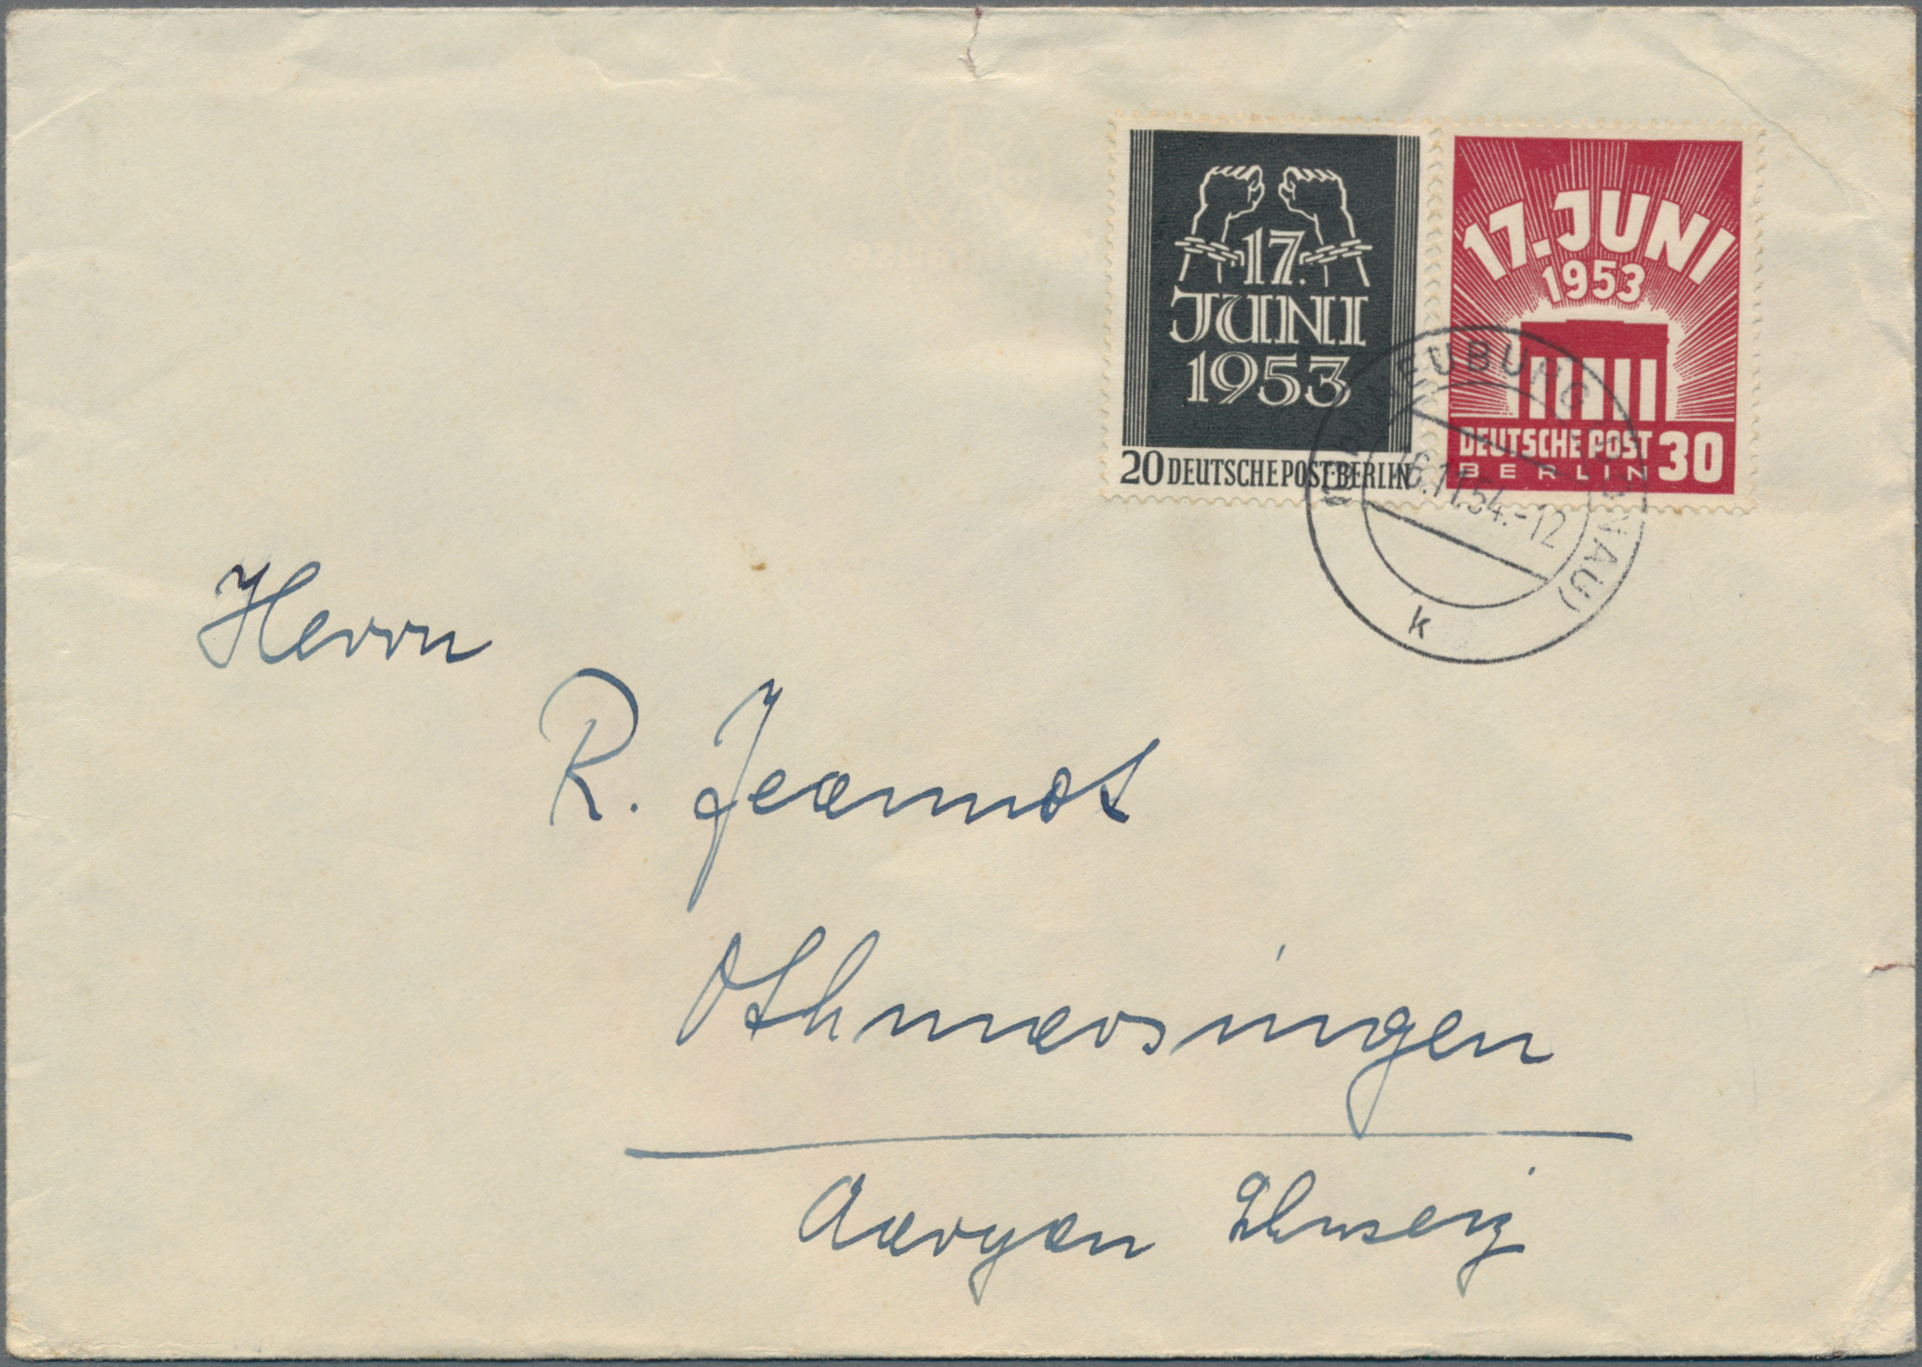 17.
JUNI
1953
20 DEUTSCHE POST·BERLIN
17. JUNI
1953
DEUTSCHE POST 30
BERLIN
NEUBURG (DONAU)
6.11.54.-12
k
Herrn
R. Jeannot
Othmarsingen
Aargau Schweiz